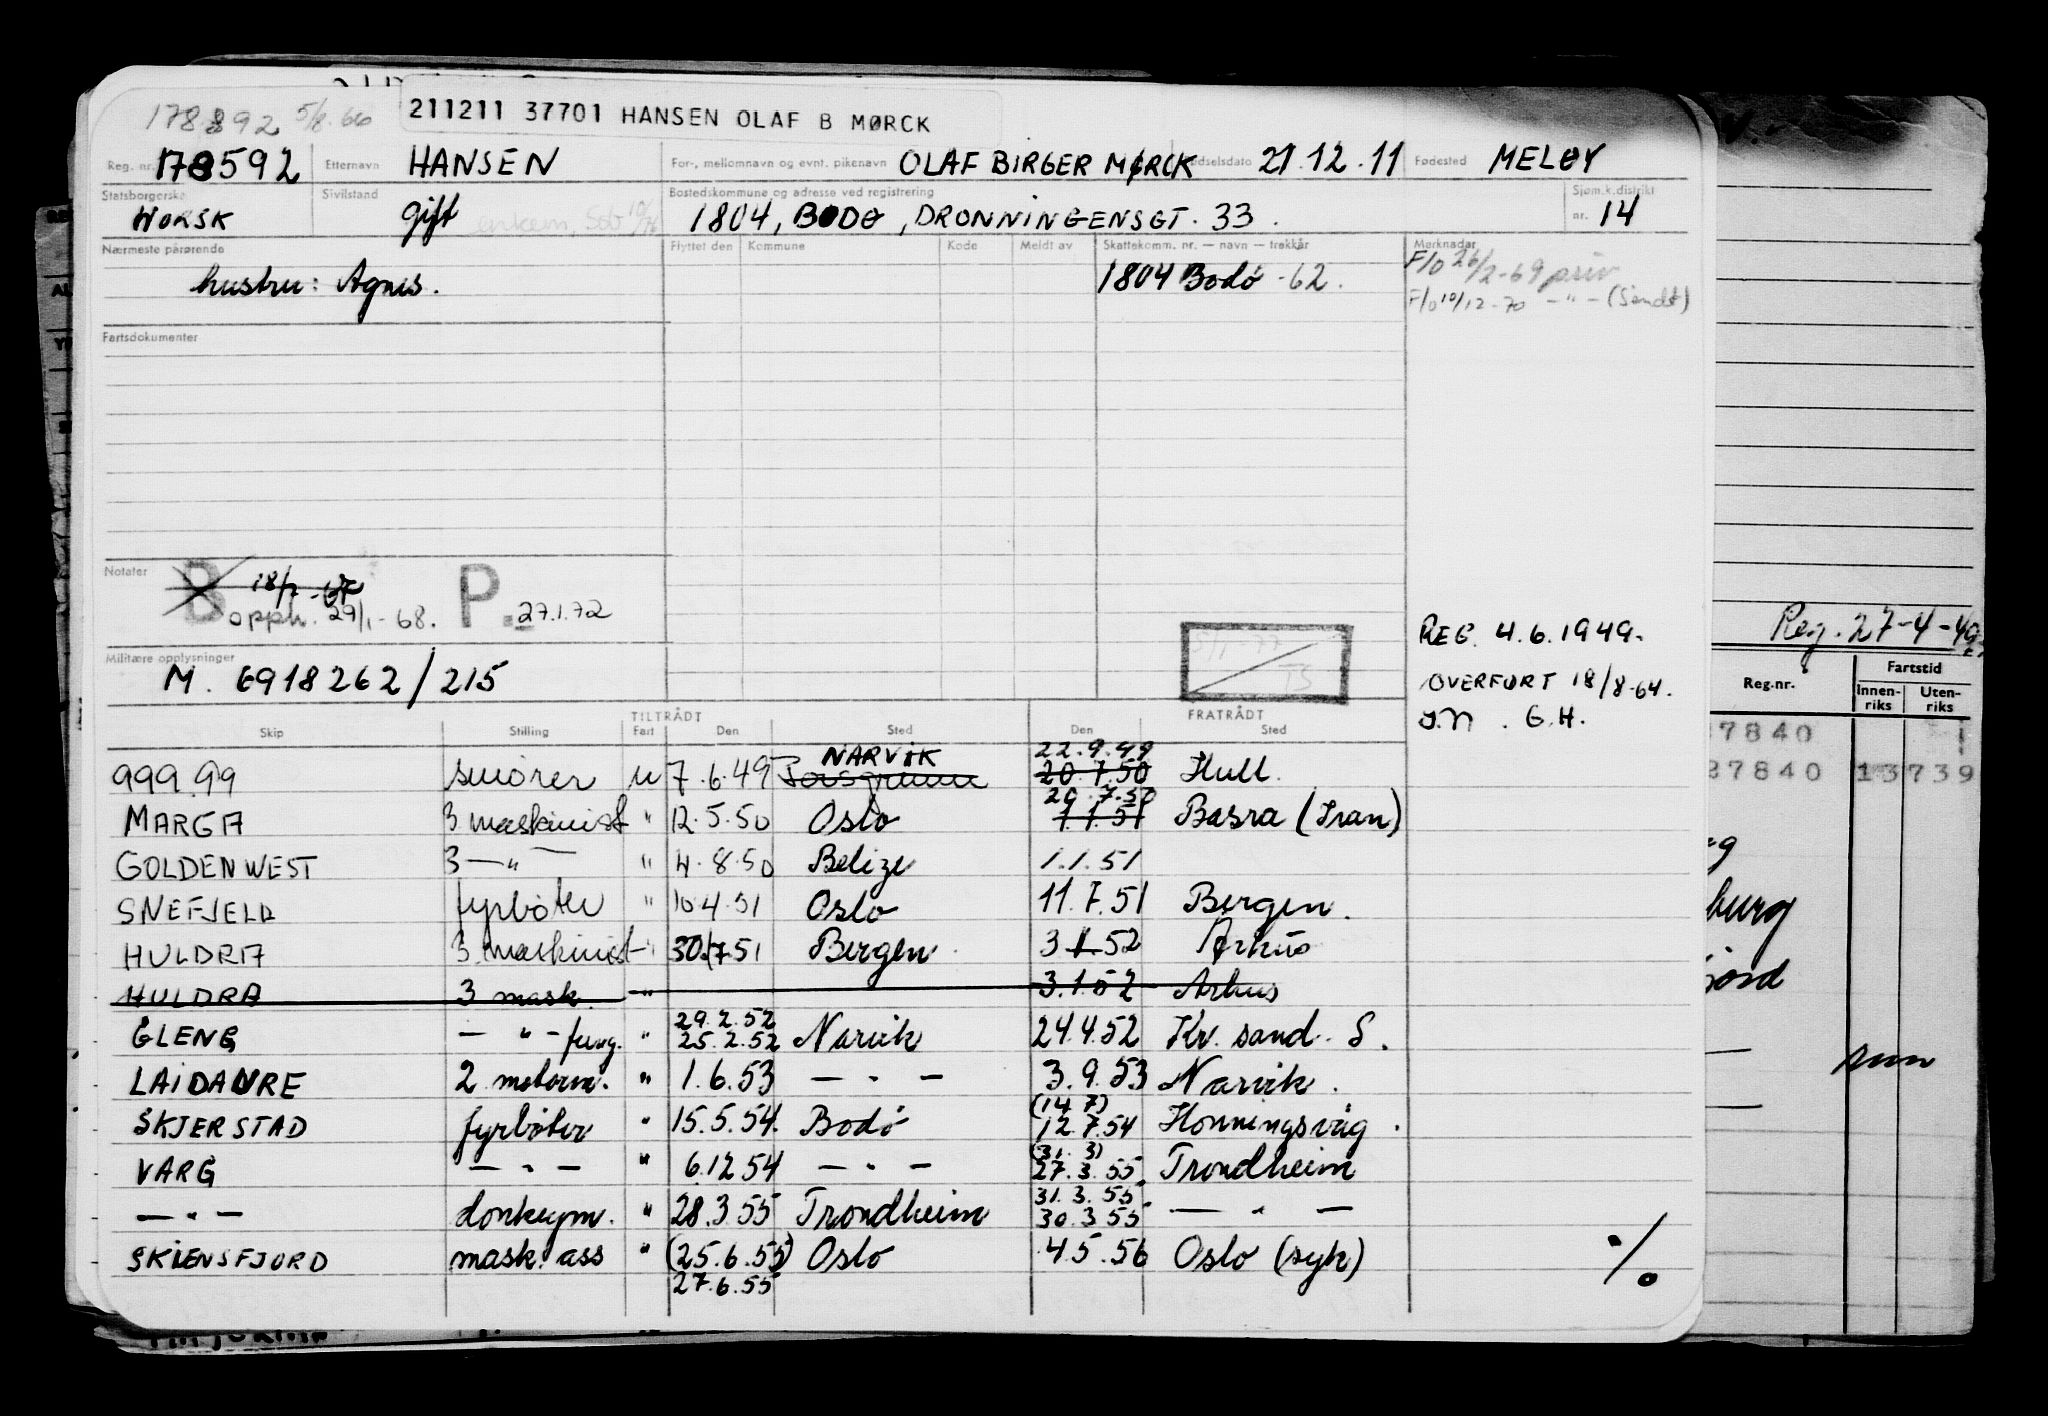 178892 5/8.66
211211 37701 HANSEN OLAF B MØRCK
Reg. nr. 178592 Etternavn HANSEN For-, mellomnavn og evnt. pikenavn OLAF BIRGER MØRCK Fødselsdato 21.12.11 Fødested MELØY
Statsborgerskap NORSK Sivilstand gift Bostedskommune og adresse ved registrering 1804, BODØ, DRONNINGENSGT. 33. Sjøm.k.distrikt nr. 14
Nærmeste pårørende Flyttet den Kommune Kode Meldt av Skattekomm. nr. — navn — trekkår Merknader
hustru: Agnes. 1804 Bodø -62. F/o 26/2-69 priv
F/o 10/12-70 - " - (Sendt)
Fartsdokumenter
Notater B 18/7-67
opph. 29/1-68. P. 27.1.72
REG. 4.6.1949.
Reg. 27-4-49
Militære opplysninger
M. 6918262/215
OVERFØRT 18/8-64.
G.H.
Reg.nr. Fartstid
Innen-riks Uten-riks
TILTRÅDT FRATRÅDT
Skip Stilling Fart Den Sted Den Sted
NARVIK 22.9.49
999.99 smører u 7.6.49 Porsgrunn 20.7.50 Hull.
20.7.50
MARGA 3 maskinist " 12.5.50 Oslo 1.1.51 Basra (Iran)
GOLDEN WEST 3 — " — " 4.8.50 Belize 1.1.51
SNEFJELD fyrbøter " 10.4.51 Oslo 11.7.51 Bergen.
HULDRA 3. maskinist " 30.7.51 Bergen 3.1.52 Århus
HULDRA 3 mask. " 3.1.52 Århus
29.2.52
GLENG — " — fung. " 25.2.52 Narvik 24.4.52 Kr. sand. S.
LAIDAURE 2. motorm. " 1.6.53 — " — 3.9.53 Narvik.
(14.7)
SKJERSTAD fyrbøter " 15.5.54. Bodø 12.7.54 Honningsvåg.
(31.3)
VARG — " — " 6.12.54 — " — 27.3.55 Trondheim
31.3.55
— " — donkeym. " 28.3.55 Trondheim 30.3.55 — " —
SKIENSFJORD mask. ass " (25.6.55) Oslo 4.5.56 Oslo (syk)
27.6.55
./.
7840
27840 13 739
burg